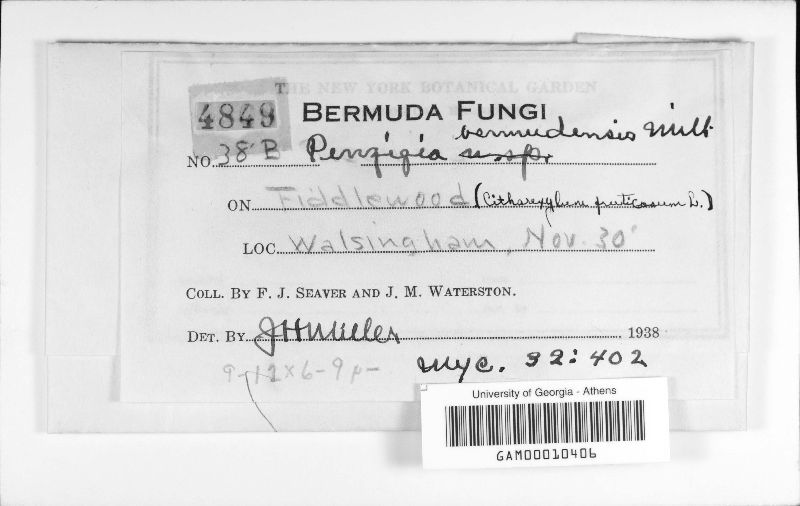 THE NEW YORK BOTANICAL GARDEN
4849
BERMUDA FUNGI
bermudensis Mill.
NO. 38 B Penzigia n. sp.
ON Fiddlewood (Citharexylum fruticosum L.)
LOC. Walsingham, Nov. 30
COLL. BY F. J. SEAVER AND J. M. WATERSTON.
DET. BY JHMiller 1938
9-12 x 6-9 µ
Myc. 32: 402
University of Georgia - Athens
GAM00010406